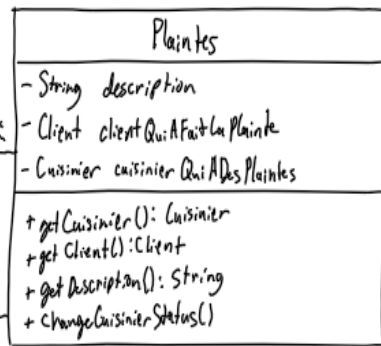 Plaintes
- String description
- Client clientQuiAFaitLaPlainte
- Cuisinier cuisinierQuiADesPlaintes
+ getCuisinier(): Cuisinier
+ getClient(): Client
+ getDescription(): String
+ changeCuisinierStatus()